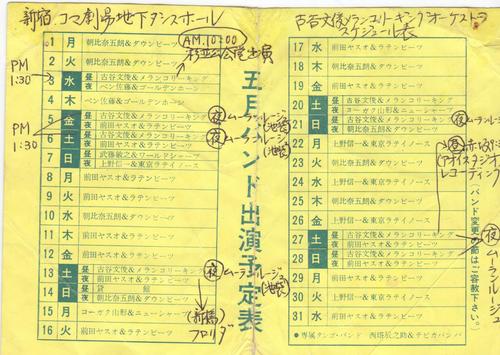 新宿コマ劇場地下ダンスホール
古谷文俊メランコリーキングオーケストラ
スケジュール表
五月バンド出演予定表
PM
1:30
PM
1:30
1 月 朝比奈五朗&ダウンビーツ
AM.10:00
2 火 朝比奈五朗&ダウンビーツ
3 水 昼 古谷文俊&メランコリーキング
夜 ベン佐藤&ゴールデンホーン
4 木 ベン佐藤&ゴールデンホーン
5 金 昼 古谷文俊&メランコリーキング
夜 前田ヤスオ&ラテンビーツ
夜 ムーランルージュ
(池袋)
6 土 昼 古谷文俊&メランコリーキング
夜 前田ヤスオ&ラテンビーツ
夜 ムーランルージュ
(池袋)
7 日 昼 武藤敏之&ワールドシャープ
夜 上野信一&東京ラテイノース
8 月 前田ヤスオ&ラテンビーツ
9 火 前田ヤスオ&ラテンビーツ
10 水 朝比奈五朗&ダウンビーツ
11 木 前田ヤスオ&ラテンビーツ
12 金 前田ヤスオ&ラテンビーツ
13 土 昼 古谷文俊&メランコリーキング
夜 前田ヤスオ&ラテンビーツ
夜 ムーランルージュ
(池袋)
14 日 昼 貸 館
夜 朝比奈五朗&ダウンビーツ
15 月 コーガク山形&ニューシャープ
(新橋)
フロリダ
16 火 前田ヤスオ&ラテンビーツ
17 水 前田ヤスオ&ラテンビーツ
18 木 前田ヤスオ&ラテンビーツ
19 金 前田ヤスオ&ラテンビーツ
20 土 昼 古谷文俊&メランコリーキング
夜 コーガク山形&ニューシャープ
21 日 昼 古谷文俊&メランコリーキング
夜 朝比奈五朗&ダウンビーツ
夜 ムーランルージュ
22 月 上野信一&東京ラテイノース
23 火 朝比奈五朗&ダウンビーツ
24 水 上野信一&東京ラテイノース
夜 赤坂
(アオイスタジオ
レコーディング
25 木 上野信一&東京ラテイノース
26 金 上野信一&東京ラテイノース
27 土 昼 古谷文俊&メランコリーキング
夜 前田ヤスオ&ラテンビーツ
28 日 昼 古谷文俊&メランコリーキング
夜 前田ヤスオ&ラテンビーツ
夜 ムーランルージュ
29 月 前田ヤスオ&ラテンビーツ
30 火 上野信一&東京ラテイノース
31 水 前田ヤスオ&ラテンビーツ
●専属タンゴ・バンド 西塔辰之助&テピカバンバ
(バンド変更の節はご容赦下さい。)